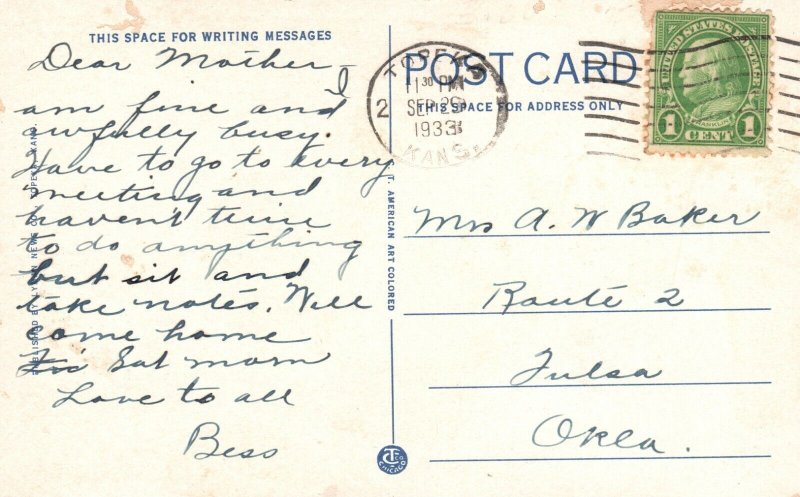 THIS SPACE FOR WRITING MESSAGES
Dear Mother – I
am fine and
awfully busy.
Have to go to every
meeting and
haven't time
to do anything
but sit and
take notes. Will
come home
Sat morn
Love to all
Bess
TOPEKA
11 30 PM
SEP 26
1933
KANS.
2
POST CARD
THIS SPACE FOR ADDRESS ONLY
UNITED STATES POSTAGE
FRANKLIN
1 CENT 1
Mrs A. W Baker
Route 2
Tulsa
Okla.
C. T. AMERICAN ART COLORED
PUBLISHED BY NEWS CO., TOPEKA, KANS.
CT CO
CHICAGO